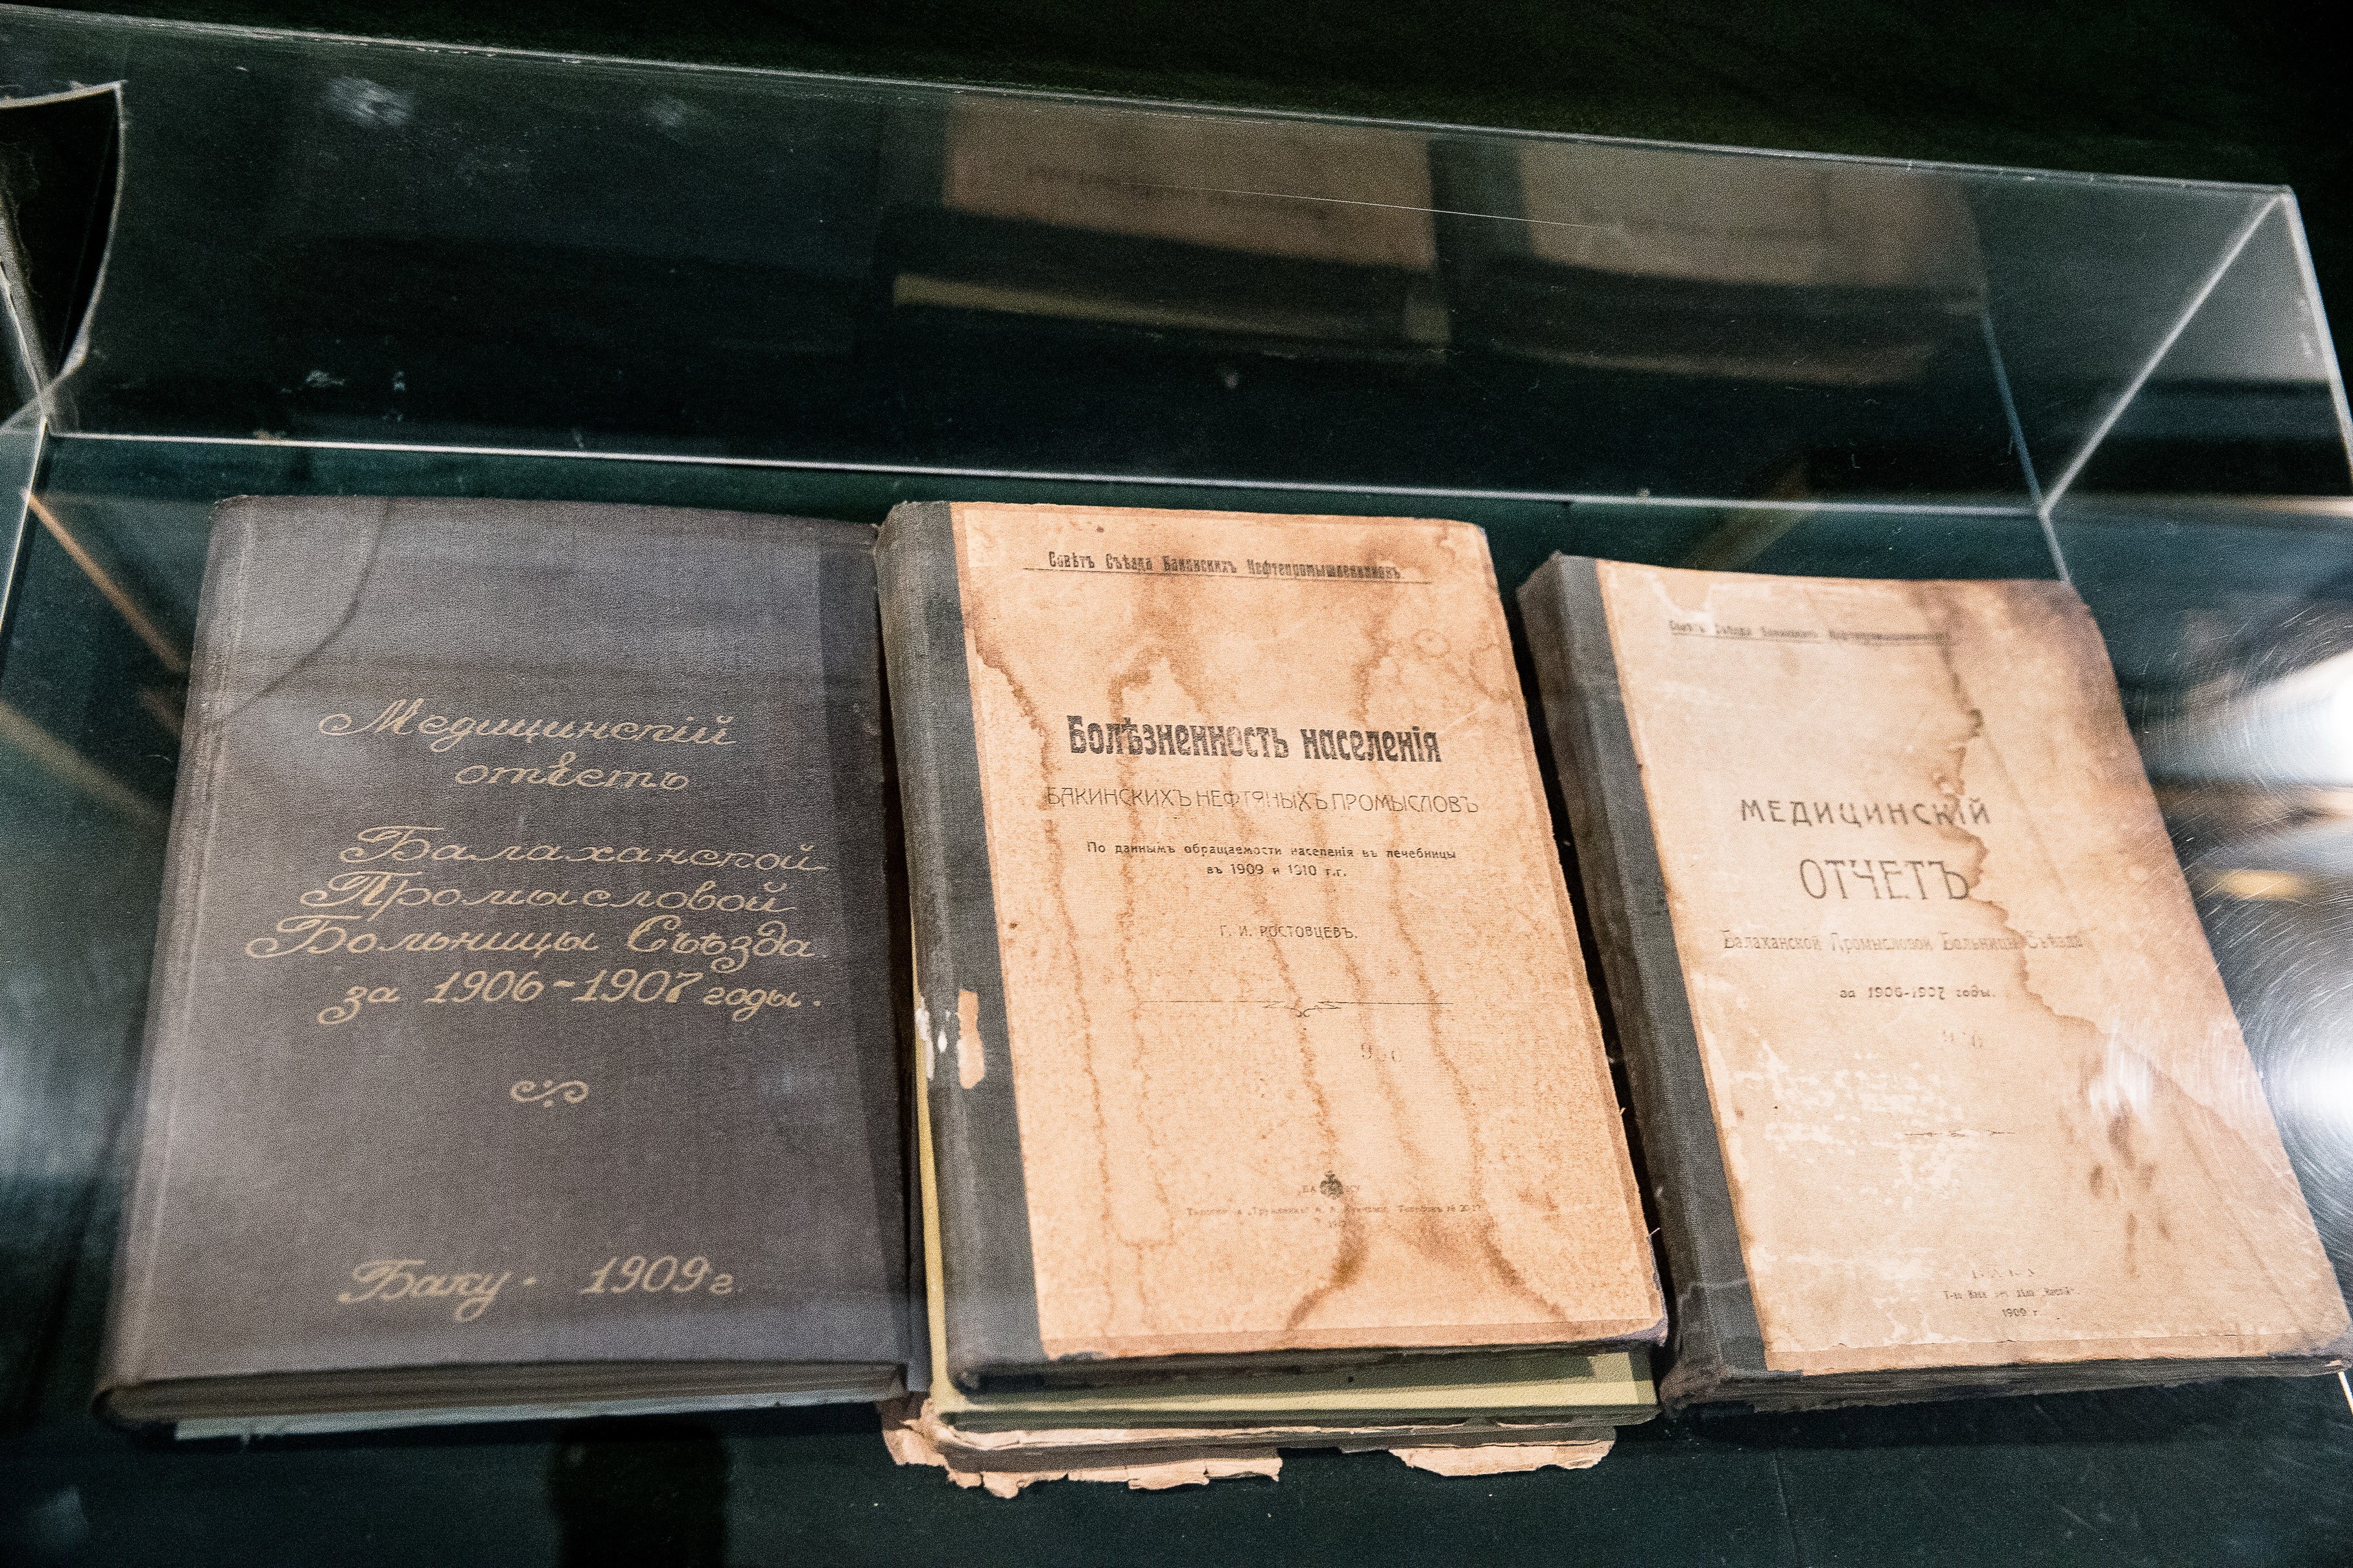 Медицинскій
отвѣтъ
Балаханской
Промысловой
Больницы Съѣзда
за 1906-1907 годы.
Баку. 1909 г.
Совѣтъ Съѣзда Бакинскихъ Нефтепромышленниковъ
Болѣзненность населенія
БАКИНСКИХЪ НЕФТЯНЫХЪ ПРОМЫСЛОВЪ
По даннымъ обращаемости населенія въ лечебницы
въ 1909 и 1910 г.г.
Г. И. РОСТОВЦЕВЪ.
Совѣтъ Съѣзда Бакинскихъ Нефтепромышленниковъ
МЕДИЦИНСКІЙ
ОТЧЕТЪ
Балаханской Промысловой Больницы Съѣзда
за 1906-1907 годы.
1909 г.